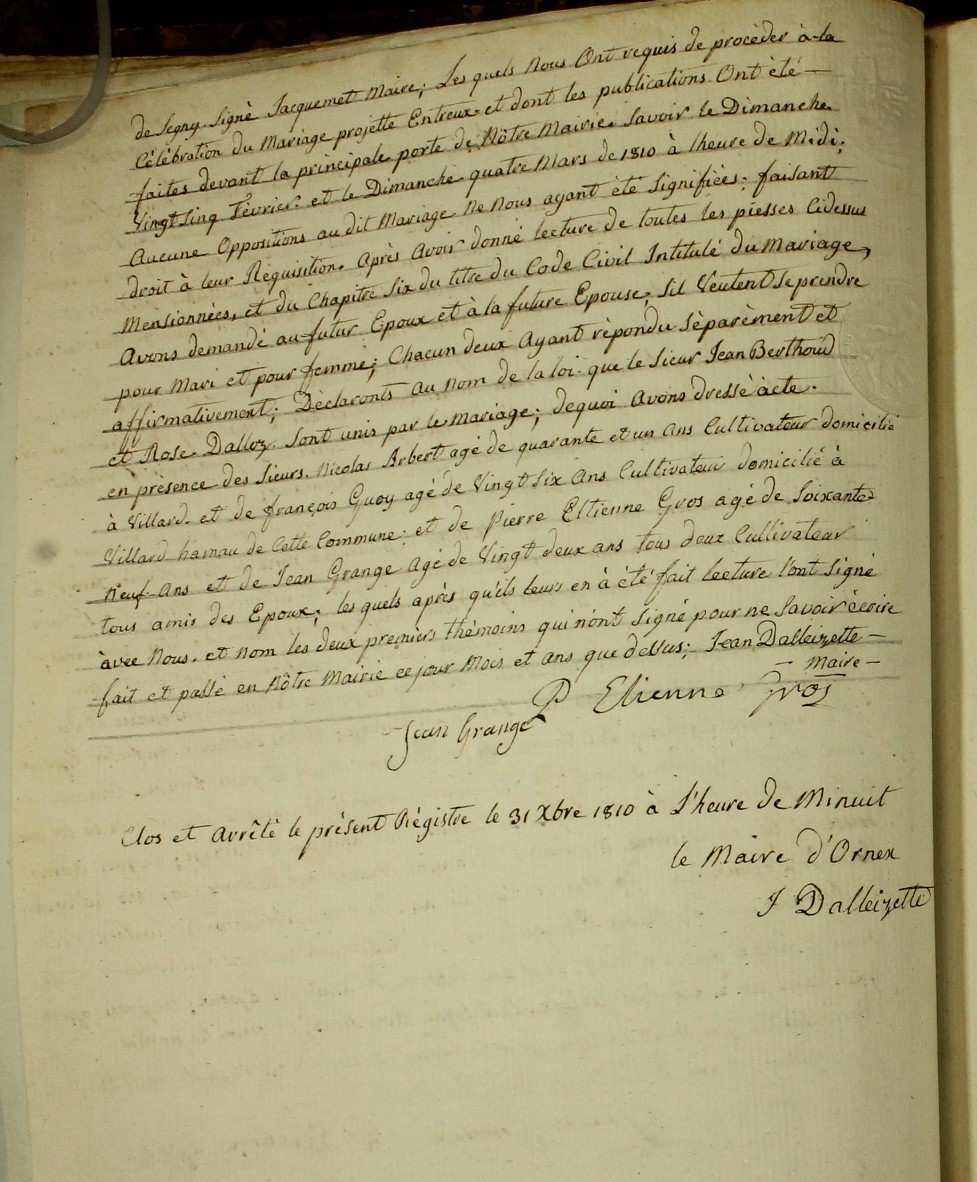 de Segny. Signé Jacquemet Maire; Les quels Nous Ont requis de procèder à la
Célébration du Mariage projetté Entreux et dont les publications Ont été
faites devant la principale porte de Nôtre Mairie. Savoir le Dimanche
Vingt Sinq Février. et le Dimanche quatre Mars de 1810 à lheure de Midi;
Aucune Oppositions au dit Mariage Ne Nous ayant été Signifiées; faisant
droit à leur Requisition. Après Avoir donné lecture de toutes les piesses Cidessus
Mensionnées, et du Chapitre Six du titre du Code Civil Intitulé du Mariage,
Avons demandé au futur Epoux et à la future Epouse; Sil Veutent Se prendre
pour Mari et pour femme; Chacun deux Ayant rèpondu Sèparèment et
affirmativement; Dèclaronts Au Nom de la loi. que le Sieur Jean Berthoud
et Rose Dalloz. Sont unis par le Mariage; dequoi Avons dressé àcte.
en présence des Sieurs. Nicolas Arbert agé de quarante et un Ans Cultivateur domicilié
à Villard. et de françois Guoy agé de Vingt Six Ans Cultivateur domicilié à
Villard hamau de Cette Commune; et de Pierre Ettienne Gros agé de Soixante
Neuf Ans et de Jean Grange Agé de Vingt deux ans tous deux Cultivateur
tous amis des Epoux; les quels après qu'ils leurs en à été fait lecture l'ont Signé
àvec Nous. et nom les deux premiers thémoins qui n'ont Signé pour ne Savoir écrire
fait et passé en Nôtre Mairie ce jour Mois et ans que dessus; Jean Dalleizette
Maire
Jean Grange P Etienne Gros
Clos et Arrêté le présent Régistre le 31 Xbre 1810 à l'heure de Minuit
le Maire d'Ornex
J Dalleizette